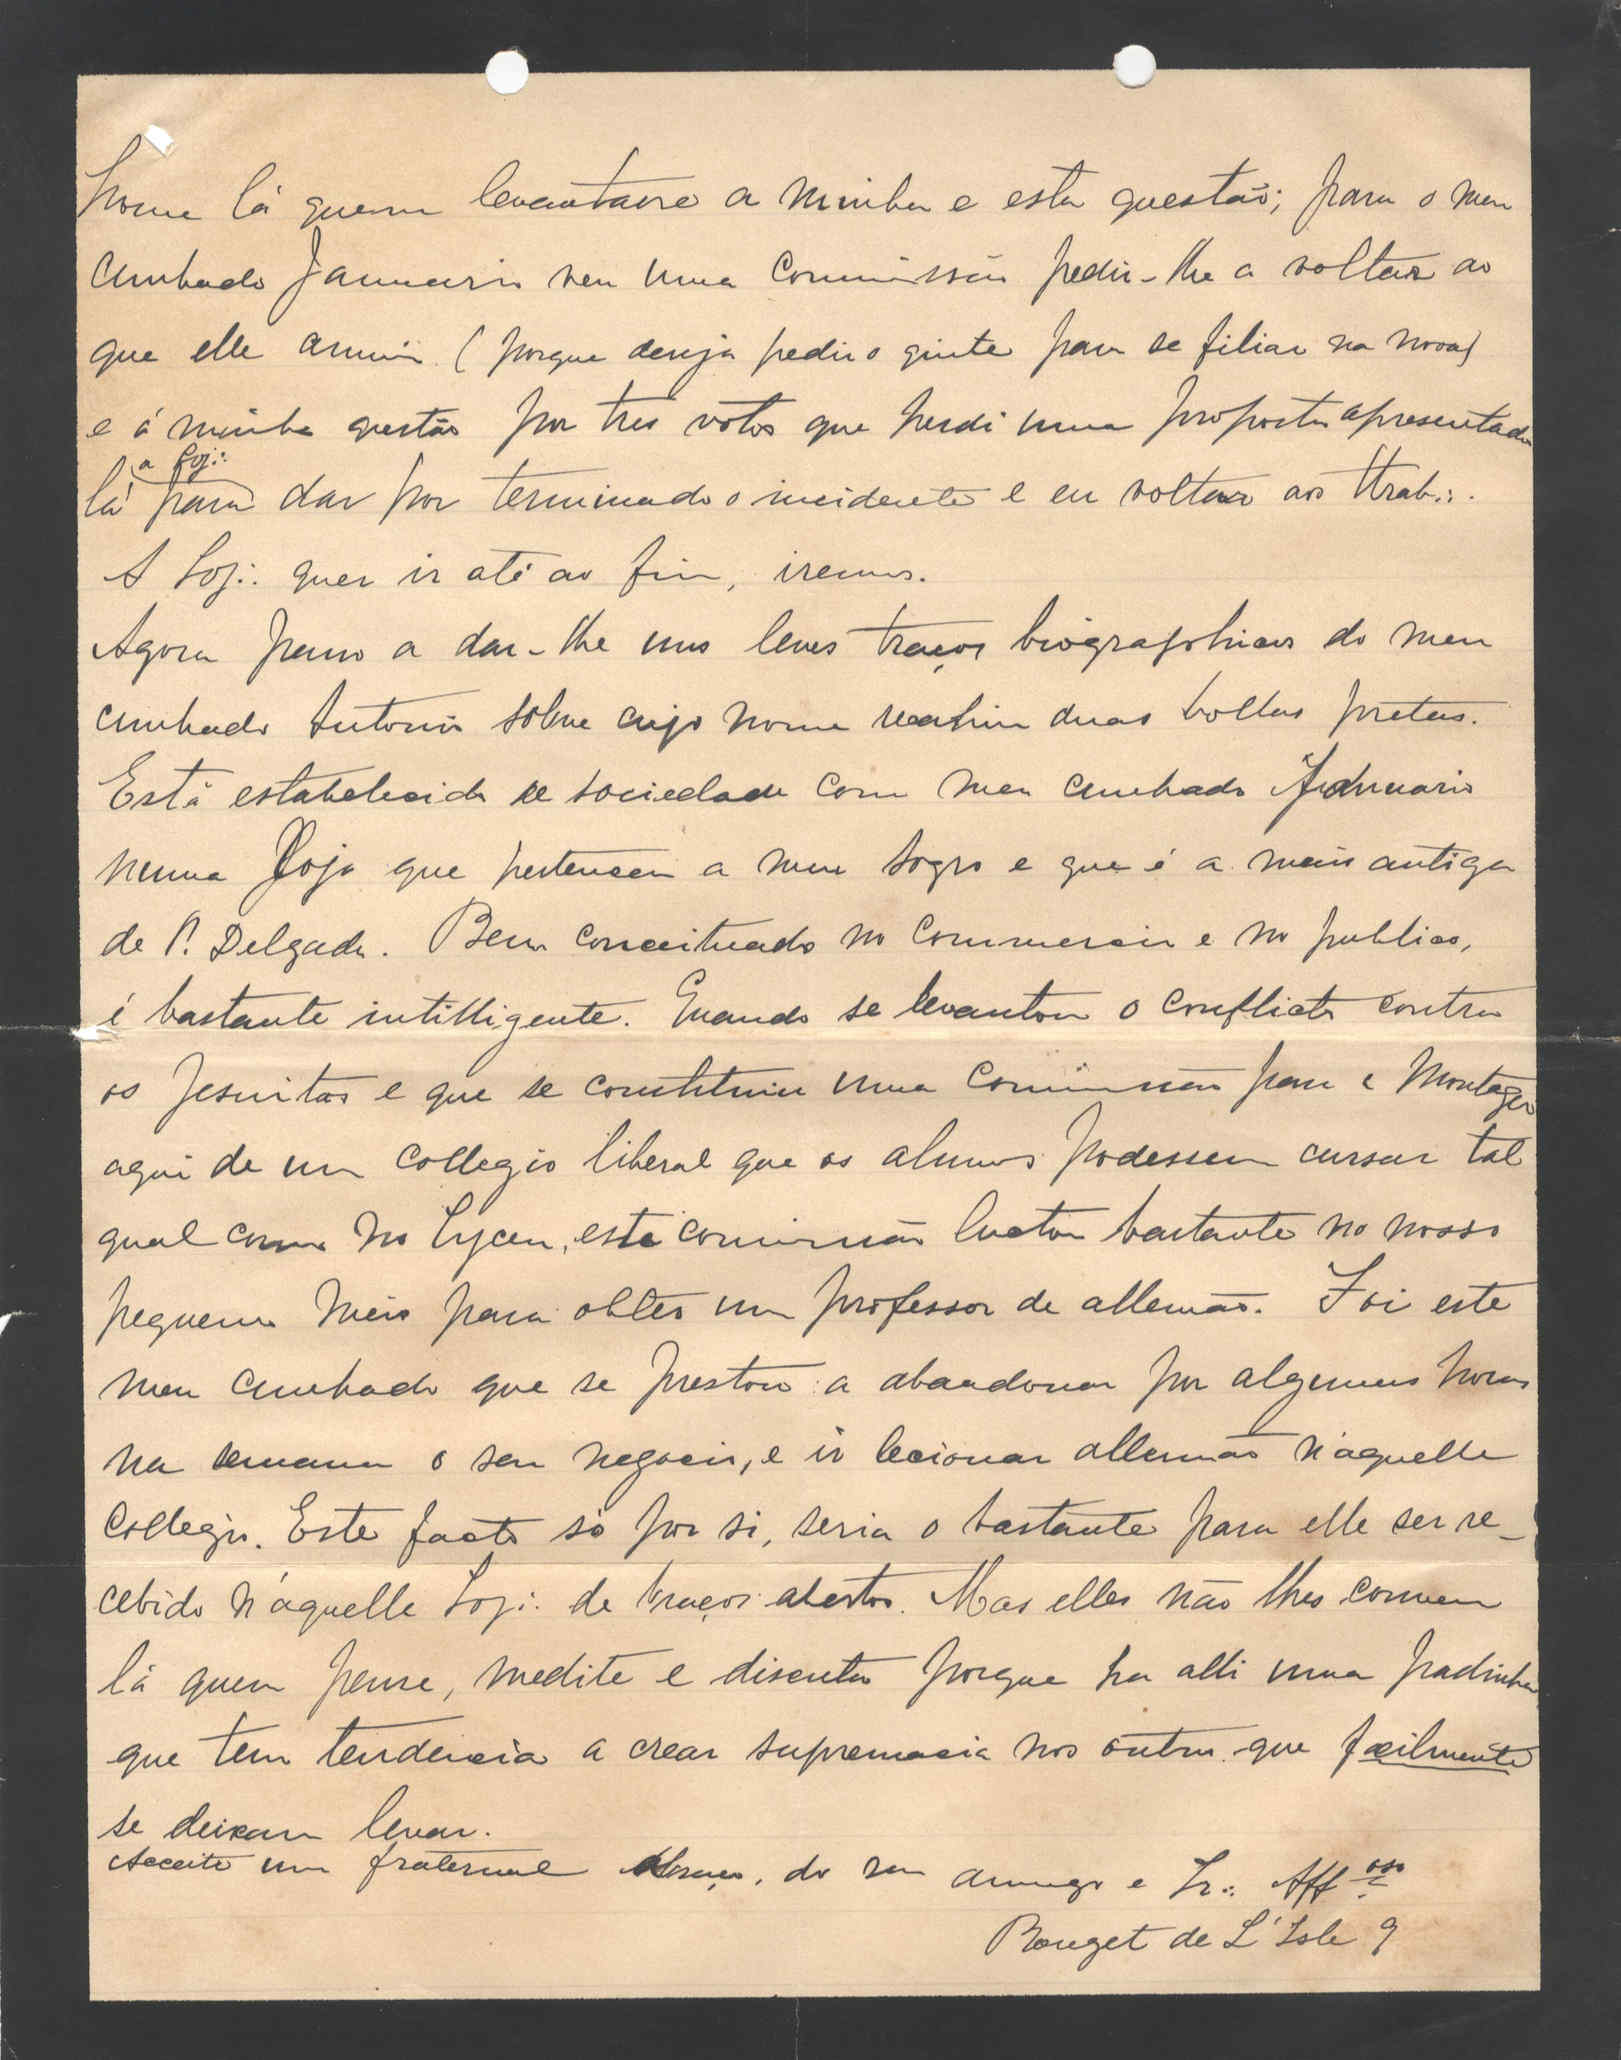 houve lá quem levantasse a minha e esta questão; para o meu
cunhado Januario veu uma Commissão pedir-lhe a voltar ao
que elle annuiu (porque deseja pedir o quite para se filiar na nova)
e á minha questão por tres votos que perdi uma proposta apresentada
lá para a Loj∴ dar por terminado o incidente e eu voltar aos ttrab∴.
A Loj∴ quer ir até ao fim, iremos.
Agora passo a dar-lhe uns leves traços biographicos do meu
cunhado Antonio sobre cujo nome recahiu duas bollas pretas.
Está estabelecido de sociedade com meu cunhado Januario
numa Loja que pertenceu a meu sogro e que é a mais antiga
de P. Delgada. Bem conceituado no Commercio e no publico,
é bastante intilligente. Quando se levantou o conflicto contra
os Jesuitas e que se constituiu uma Comissão para a montagem
aqui de um Collegio liberal que os alumnos podessem cursar tal
qual como no Lyceu, esta comissão luctou bastante no nosso
pequeno meio para obter um professor de allemão. Foi este
meu cunhado que se prestou a abandonar por algumas horas
na semana o seu negocio, e ir lecionar allemão n'aquelle
Collegio. Este facto só por si, seria o bastante para elle ser re-
cebido n'aquelle Loj∴ de braços abertos. Mas elles não lhes convem
lá quem pense, medite e discuta porque ha alli uma
que tem tendencia a crear supremacia nos outros que facilmente
se deixam levar.
Acceite um fraternal Abraço, do seu amigo e Ir∴ Aff.oso
Rouget de L'Isle 9